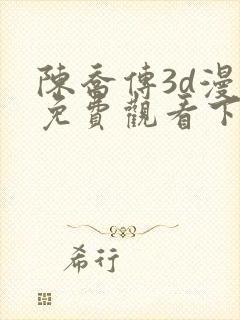 陳喬傅3d漫
免費觀看下
希行